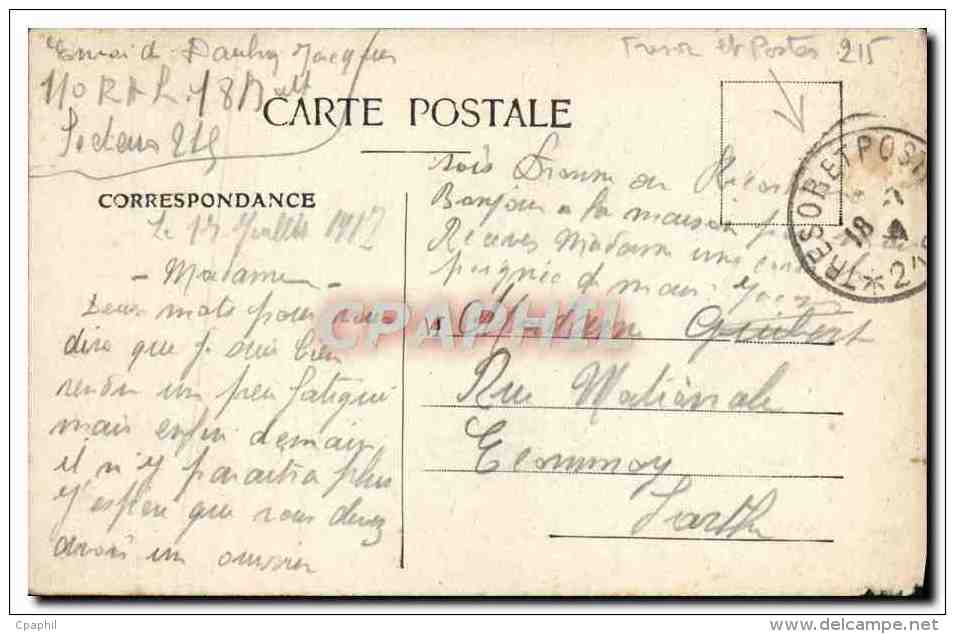 Envoi de Jacques
110 R.A.L. 18 Batt
Secteur 215
Tresor et Postes 215
CARTE POSTALE
CORRESPONDANCE
TRESOR ET POSTES
18
Le 17 Juillet 1917
- Madame -
Deux mots pour vous
dire que je suis bien
rendu un peu fatigué
mais enfin demain
il n'y paraitra plus
J'espere que vous devez
avoir un ouvrier
Bonjour a la maison
Recevez Madame une
poignée de main Jacques
Madame Guibert
Rue Nationale
Ecommoy
Sarthe
CPAPHIL
Cpaphil
www.delcampe.net